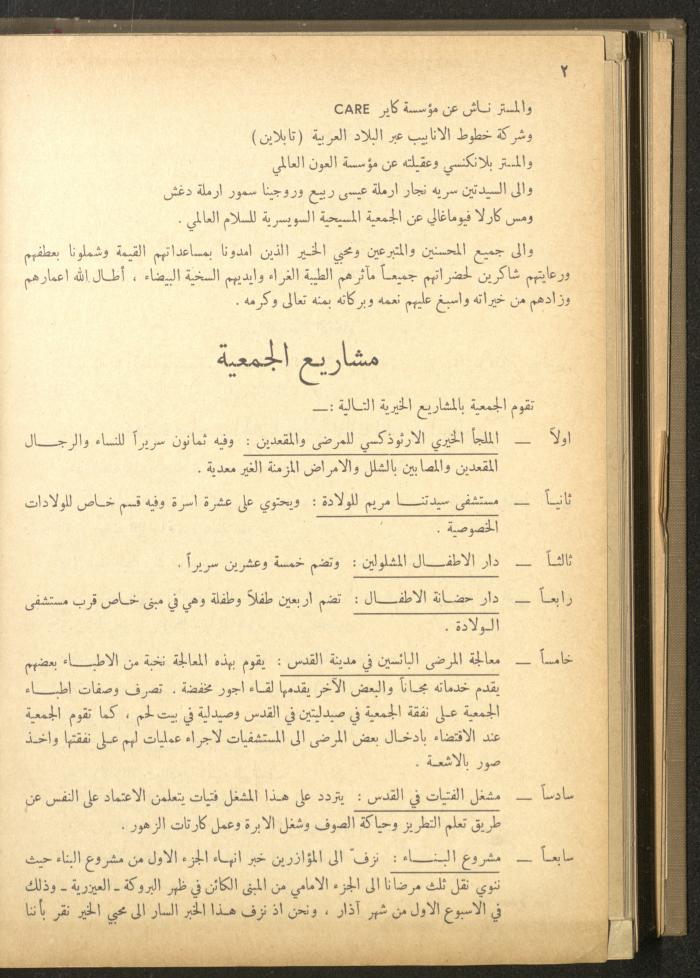 ٢
والمستر نـاش عن مؤسسة كاير CARE
وشركة خطوط الانابيب عبر البلاد العربية (تابلاين)
والمستر بلانكنسي وعقيلته عن مؤسسة العون العالمي
والى السيدتين سريه نجار ارملة عيسى ربيع وروجينا سمور ارملة دغش
ومس كارلا فيوماغالي عن الجمعية المسيحية السويسرية للسلام العالمي .
والى جميع المحسنين والمتبرعين ومحبي الخـير الذين امدونا بمساعداتهم القيمة وشملونا بعطفهم
ورعايتهم شاكرين لحضراتهم جميعـاً مآثرهم الطيبة الغراء وايديهم السخية البيضاء ، أطـال الله اعمارهم
وزادهم من خيراته واسبغ عليهم نعمه وبركاته بمنه تعالى وكرمه .
مشاريع الجمعية
تقوم الجمعية بالمشاريع الخيرية التـالية :ــ
اولاً ــ الملجأ الخيري الارثوذكسي للمرضى والمقعدين : وفيه ثمانون سريراً للنساء والرجــال
المقعدين والمصابين بالشلل والامراض المزمنة الغير معدية .
ثانيـاً ــ مستشفى سيدتنــا مريم للولادة : ويحتوي على عشرة اسرة وفيه قسم خـاص للولادات
الخصوصية .
ثالثـاً ــ دار الاطفــال المشلولين : وتضم خمسة وعشرين سريراً .
رابعـاً ــ دار حضـانة الاطفــال : تضم اربعين طفلاً وطفلة وهي في مبنى خـاص قرب مستشفى
الـولادة .
خامسـاً ــ معالجة المرضى البائسين في مدينة القدس : يقوم بهذه المعالجة نخبة من الاطبــاء بعضهم
يقدم خدماته مجـاناً والبعض الآخر يقدمها لقـاء اجور مخفضة . تصرف وصفات اطبــاء
الجمعية عـلى نفقة الجمعية في صيدليتين في القدس وصيدلية في بيت لحم ، كما تقوم الجمعية
عند الاقتضاء بادخـال بعض المرضى الى المستشفيات لاجراء عمليات لهم عـلى نفقتها واخـذ
صور بالاشعـة .
سادساً ــ مشغل الفتيات في القدس : يتردد على هـذا المشغل فتيات يتعلمن الاعتماد على النفس عن
طريق تعلم التطريز وحياكة الصوف وشغل الابرة وعمل كارتات الزهور .
سابعـاً ــ مشروع البنــاء : نزفّ الى المؤازرين خبر انهـاء الجزء الاول من مشروع البناء حيث
ننوي نقل ثلث مرضانا الى الجزء الامامي من المبنى الكائن في ظهر البروكة ـ العيزرية ـ وذلك
في الاسبوع الاول من شهر آذار ، ونحن اذ نزف هـذا الخبر السار الى محبي الخير نقر بأننا